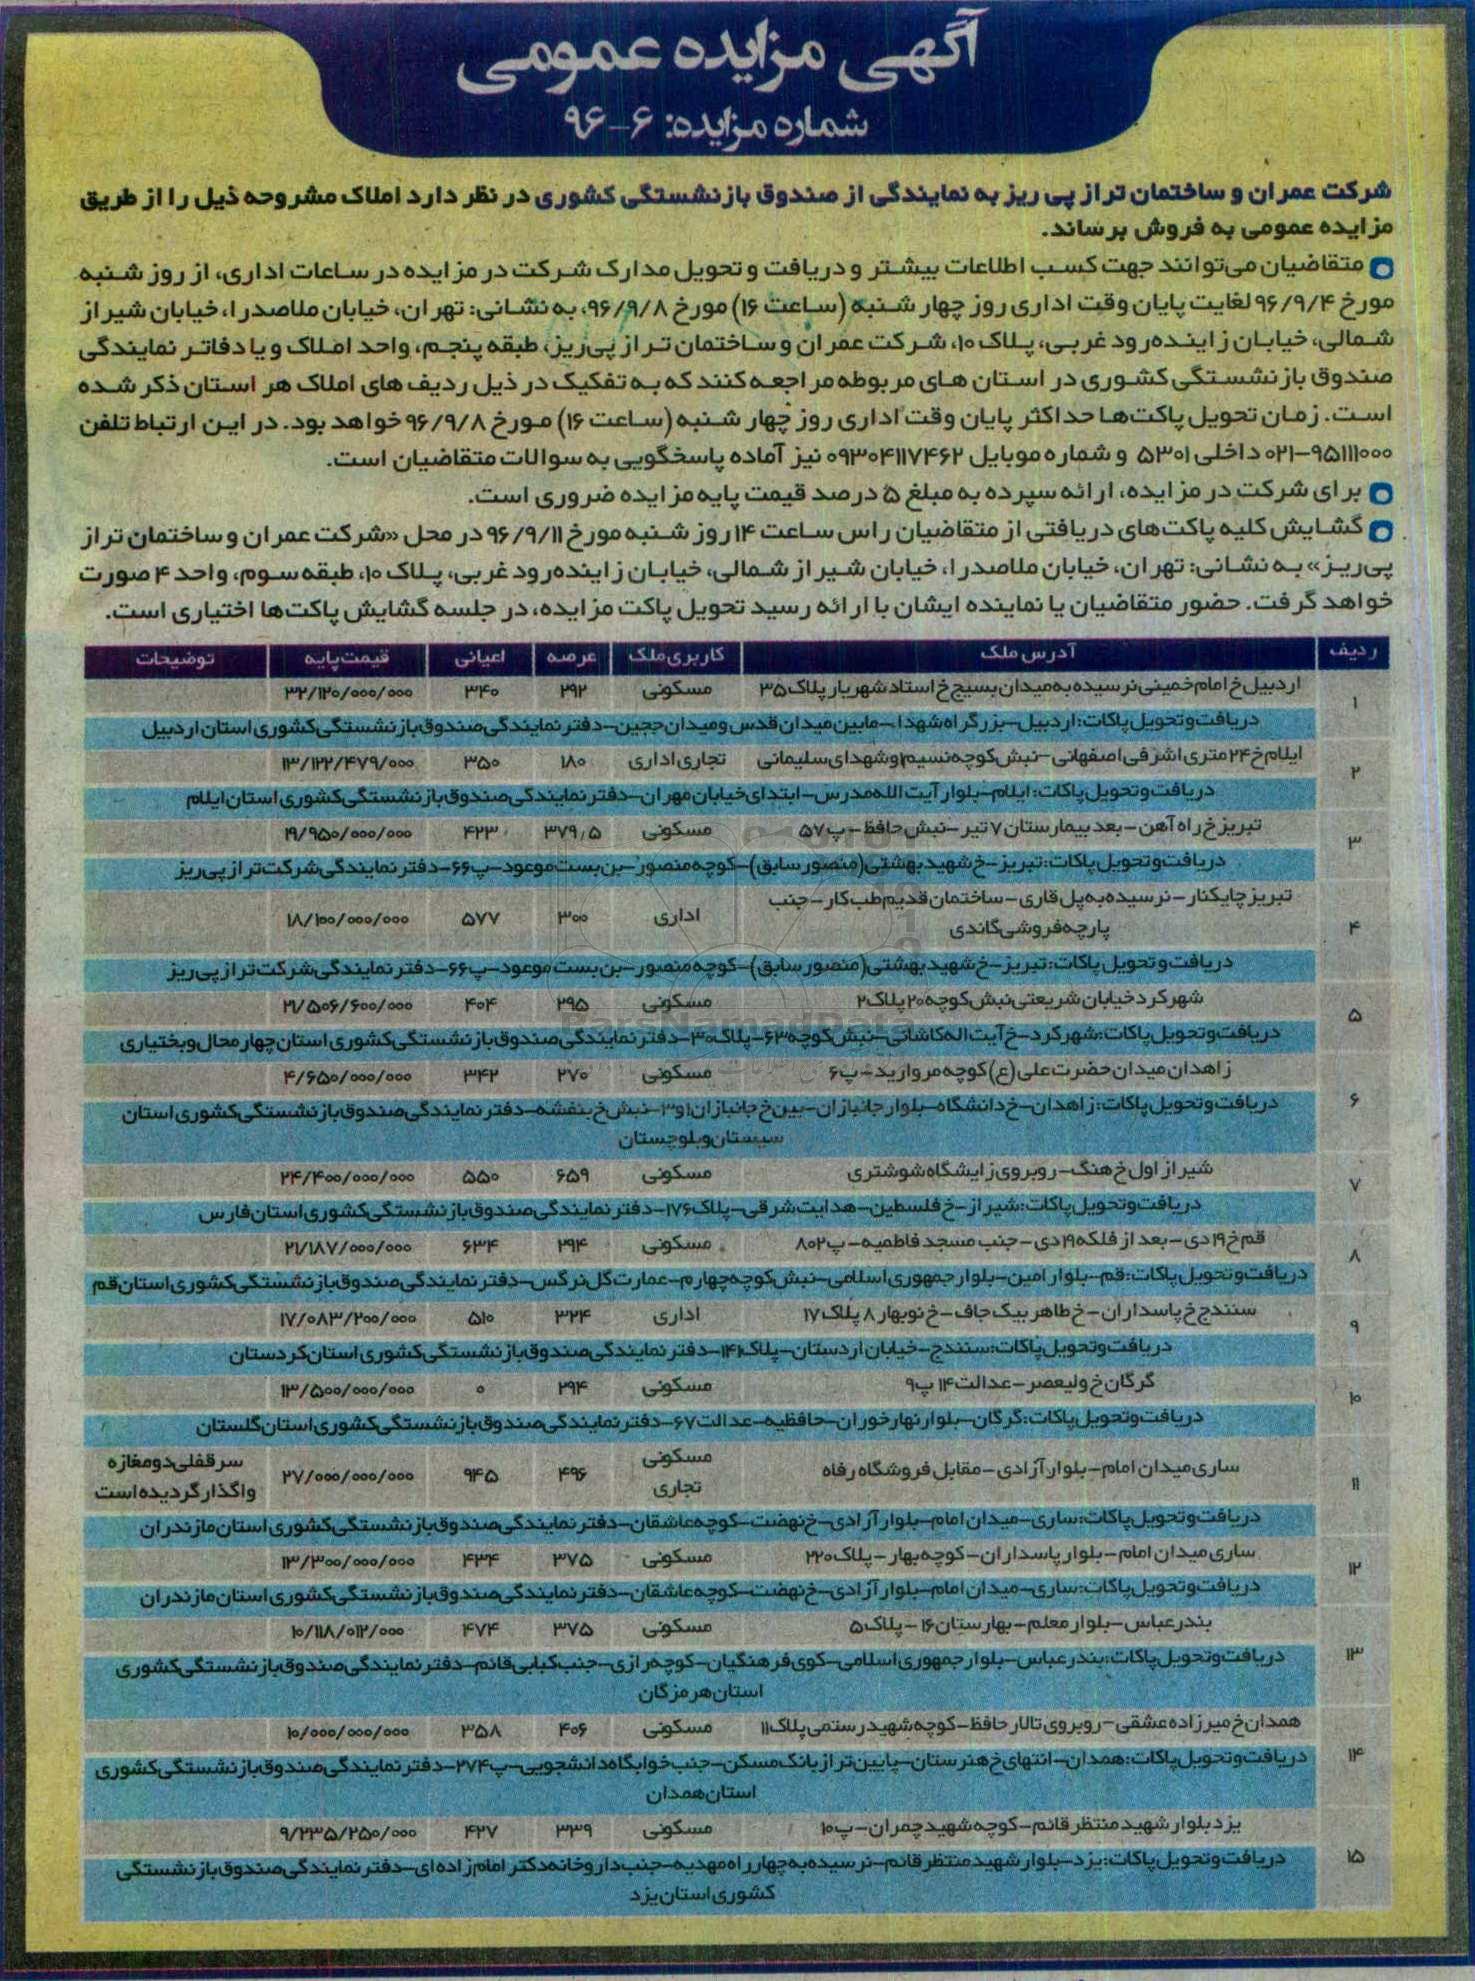 آگهی مزایده عمومی
شماره مزایده: ۶-۹۶
شرکت عمران و ساختمان تراز پی ریز به نمایندگی از صندوق بازنشستگی کشوری در نظر دارد املاک مشروحه ذیل را از طریق
مزایده عمومی به فروش برساند.
متقاضیان می‌توانند جهت کسب اطلاعات بیشتر و دریافت و تحویل مدارک شرکت در مزایده در ساعات اداری، از روز شنبه
مورخ ۹۶/۹/۴ لغایت پایان وقت اداری روز چهار شنبه (ساعت ۱۶) مورخ ۹۶/۹/۸، به نشانی: تهران، خیابان ملاصدرا، خیابان شیراز
شمالی، خیابان زاینده‌رود غربی، پلاک ۱۰، شرکت عمران و ساختمان تراز پی‌ریز، طبقه پنجم، واحد املاک و یا دفاتر نمایندگی
صندوق بازنشستگی کشوری در استان های مربوطه مراجعه کنند که به تفکیک در ذیل ردیف های املاک هر استان ذکر شده
است. زمان تحویل پاکت‌ها حداکثر پایان وقت اداری روز چهار شنبه (ساعت ۱۶) مورخ ۹۶/۹/۸ خواهد بود. در این ارتباط تلفن
۰۲۱-۹۵۱۱۱۰۰۰ داخلی ۵۳۰۱ و شماره موبایل ۰۹۳۰۴۱۱۷۴۶۲ نیز آماده پاسخگویی به سوالات متقاضیان است.
برای شرکت در مزایده، ارائه سپرده به مبلغ ۵ درصد قیمت پایه مزایده ضروری است.
گشایش کلیه پاکت‌های دریافتی از متقاضیان راس ساعت ۱۴ روز شنبه مورخ ۹۶/۹/۱۱ در محل «شرکت عمران و ساختمان تراز
پی‌ریز» به نشانی: تهران، خیابان ملاصدرا، خیابان شیراز شمالی، خیابان زاینده‌رود غربی، پلاک ۱۰، طبقه سوم، واحد ۴ صورت
خواهد گرفت. حضور متقاضیان یا نماینده ایشان با ارائه رسید تحویل پاکت مزایده، در جلسه گشایش پاکت‌ها اختیاری است.
ردیف آدرس ملک کاربری ملک عرصه اعیانی قیمت پایه توضیحات
۱ اردبیل خ امام خمینی نرسیده به میدان بسیج خ استاد شهریار پلاک ۳۵ مسکونی ۲۹۲ ۳۴۰ ۳۲/۱۲۰/۰۰۰/۰۰۰
دریافت و تحویل پاکات: اردبیل-بزرگراه شهدا-مابین میدان قدس و میدان ججین-دفتر نمایندگی صندوق بازنشستگی کشوری استان اردبیل
۲ ایلام خ ۲۴ متری اشرفی اصفهانی-نبش کوچه نسیم ۱ و شهدای سلیمانی تجاری اداری ۱۸۰ ۳۵۰ ۱۳/۱۲۲/۴۷۹/۰۰۰
دریافت و تحویل پاکات: ایلام-بلوار آیت الله مدرس-ابتدای خیابان مهران-دفتر نمایندگی صندوق بازنشستگی کشوری استان ایلام
۳ تبریز خ راه آهن-بعد بیمارستان ۷ تیر-نبش حافظ-پ ۵۷ مسکونی ۳۷۹٫۵ ۴۲۳ ۱۹/۹۵۰/۰۰۰/۰۰۰
دریافت و تحویل پاکات: تبریز-خ شهید بهشتی (منصور سابق)-کوچه منصور-بن بست موعود-پ ۶۶-دفتر نمایندگی شرکت تراز پی ریز
۴ تبریز چایکنار-نرسیده به پل قاری-ساختمان قدیم طب کار-جنب
پارچه فروشی گاندی اداری ۳۰۰ ۵۷۷ ۱۸/۱۰۰/۰۰۰/۰۰۰
دریافت و تحویل پاکات: تبریز-خ شهید بهشتی (منصور سابق)-کوچه منصور-بن بست موعود-پ ۶۶-دفتر نمایندگی شرکت تراز پی ریز
۵ شهرکرد خیابان شریعتی نبش کوچه ۲۰ پلاک ۲ مسکونی ۲۹۵ ۴۰۴ ۲۱/۵۰۶/۶۰۰/۰۰۰
دریافت و تحویل پاکات: شهرکرد-خ آیت اله کاشانی-نبش کوچه ۶۳-پلاک ۳۰-دفتر نمایندگی صندوق بازنشستگی کشوری استان چهارمحال و بختیاری
۶ زاهدان میدان حضرت علی (ع) کوچه مروارید-پ ۶ مسکونی ۲۷۰ ۳۴۲ ۴/۶۵۰/۰۰۰/۰۰۰
دریافت و تحویل پاکات: زاهدان-خ دانشگاه-بلوار جانبازان-بین خ جانبازان ۱ و ۳-نبش خ بنفشه-دفتر نمایندگی صندوق بازنشستگی کشوری استان
سیستان و بلوچستان
۷ شیراز اول خ هنگ-روبروی زایشگاه شوشتری مسکونی ۶۵۹ ۵۵۰ ۲۴/۴۰۰/۰۰۰/۰۰۰
دریافت و تحویل پاکات: شیراز-خ فلسطین-هدایت شرقی-پلاک ۱۷۶-دفتر نمایندگی صندوق بازنشستگی کشوری استان فارس
۸ قم خ ۱۹ دی-بعد از فلکه ۱۹ دی-جنب مسجد فاطمیه-پ ۸۰۲ مسکونی ۲۹۴ ۶۳۴ ۲۱/۱۸۷/۰۰۰/۰۰۰
دریافت و تحویل پاکات: قم-بلوار امین-بلوار جمهوری اسلامی-نبش کوچه چهارم-عمارت گل نرگس-دفتر نمایندگی صندوق بازنشستگی کشوری استان قم
۹ سنندج خ پاسداران-خ طاهر بیک جاف-خ نوبهار ۸ پلاک ۱۷ اداری ۳۲۴ ۵۱۰ ۱۷/۰۸۳/۲۰۰/۰۰۰
دریافت و تحویل پاکات: سنندج-خیابان اردستان-پلاک ۱۴۱-دفتر نمایندگی صندوق بازنشستگی کشوری استان کردستان
۱۰ گرگان خ ولیعصر-عدالت ۱۴ پ ۹ مسکونی ۲۹۴ ۰ ۱۳/۵۰۰/۰۰۰/۰۰۰
دریافت و تحویل پاکات: گرگان-بلوار نهارخوران-حافظیه-عدالت ۶۷-دفتر نمایندگی صندوق بازنشستگی کشوری استان گلستان
۱۱ ساری میدان امام-بلوار آزادی-مقابل فروشگاه رفاه مسکونی تجاری ۴۹۶ ۹۴۵ ۲۷/۰۰۰/۰۰۰/۰۰۰ سرقفلی دو مغازه
واگذار گردیده است
دریافت و تحویل پاکات: ساری-میدان امام-بلوار آزادی-خ نهضت-کوچه عاشقان-دفتر نمایندگی صندوق بازنشستگی کشوری استان مازندران
۱۲ ساری میدان امام-بلوار پاسداران-کوچه بهار-پلاک ۲۲۰ مسکونی ۳۷۵ ۴۳۴ ۱۳/۳۰۰/۰۰۰/۰۰۰
دریافت و تحویل پاکات: ساری-میدان امام-بلوار آزادی-خ نهضت-کوچه عاشقان-دفتر نمایندگی صندوق بازنشستگی کشوری استان مازندران
۱۳ بندرعباس-بلوار معلم-بهارستان ۱۶-پلاک ۵ مسکونی ۳۷۵ ۴۷۴ ۱۰/۱۱۸/۰۱۲/۰۰۰
دریافت و تحویل پاکات: بندرعباس-بلوار جمهوری اسلامی-کوی فرهنگیان-کوچه رازی-جنب کبابی قائم-دفتر نمایندگی صندوق بازنشستگی کشوری
استان هرمزگان
۱۴ همدان خ میرزاده عشقی-روبروی تالار حافظ-کوچه شهید رستمی پلاک ۱۱ مسکونی ۴۰۶ ۳۵۸ ۱۰/۰۰۰/۰۰۰/۰۰۰
دریافت و تحویل پاکات: همدان-انتهای خ هنرستان-پایین تر از بانک مسکن-جنب خوابگاه دانشجویی-پ ۲۷۴-دفتر نمایندگی صندوق بازنشستگی کشوری
استان همدان
۱۵ یزد بلوار شهید منتظر قائم-کوچه شهید چمران-پ ۱۰ مسکونی ۳۳۹ ۴۲۷ ۹/۲۳۵/۲۵۰/۰۰۰
دریافت و تحویل پاکات: یزد-بلوار شهید منتظر قائم-نرسیده به چهارراه مهدیه-جنب داروخانه دکتر امام زاده ای-دفتر نمایندگی صندوق بازنشستگی
کشوری استان یزد